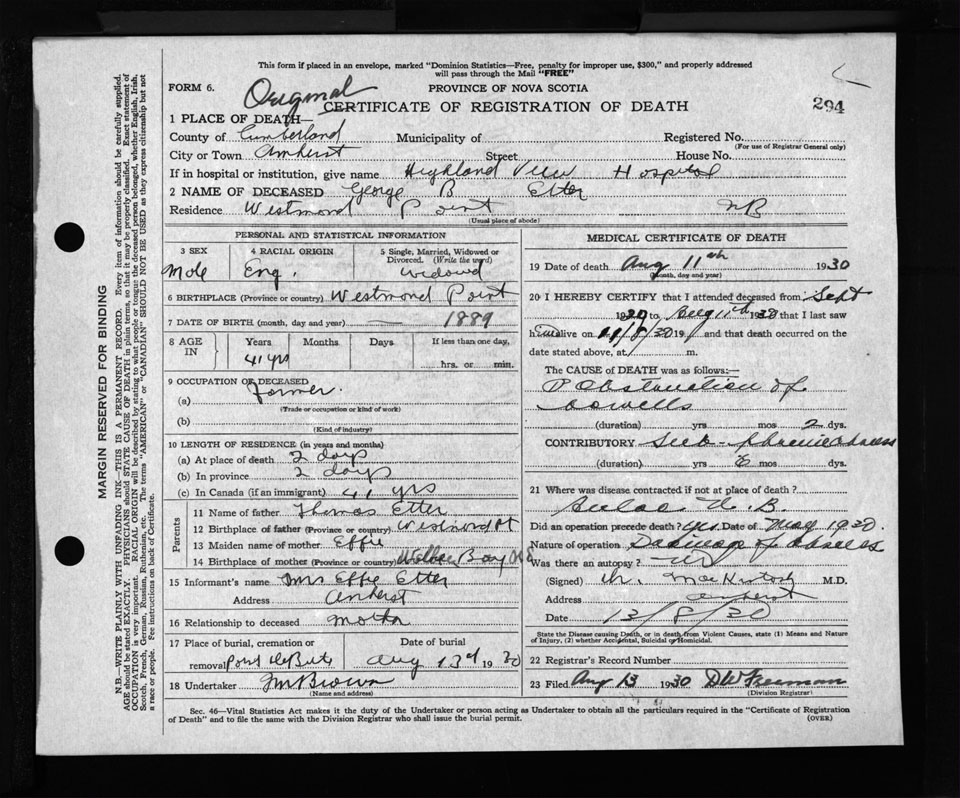 This form if placed in an envelope, marked "Dominion Statistics—Free, penalty for improper use, $300," and properly addressed
will pass through the Mail "FREE"
FORM 6.
PROVINCE OF NOVA SCOTIA
Original
CERTIFICATE OF REGISTRATION OF DEATH
294
1 PLACE OF DEATH—
County of Cumberland Municipality of Registered No.
(For use of Registrar General only)
City or Town Amherst Street House No.
If in hospital or institution, give name Highland View Hospital
2 NAME OF DECEASED George B Etter
Residence Westmond Point NB
(Usual place of abode)
PERSONAL AND STATISTICAL INFORMATION
3 SEX 4 RACIAL ORIGIN 5 Single, Married, Widowed or
Divorced. (Write the word)
Male Eng. Widowd
6 BIRTHPLACE (Province or country) Westmond Point
7 DATE OF BIRTH (month, day and year) — 1889
8 AGE IN Years Months Days If less than one day,
41 yrs hrs. or min.
9 OCCUPATION OF DECEASED
(a) Farmer.
(Trade or occupation or kind of work)
(b)
(Kind of industry)
10 LENGTH OF RESIDENCE (in years and months)
(a) At place of death 2 days
(b) In province 2 days
(c) In Canada (if an immigrant) 41 yrs
Parents
11 Name of father Thomas Etter
12 Birthplace of father (Province or country) Westmond Pt
13 Maiden name of mother Effie
14 Birthplace of mother (Province or country) Bay
15 Informant's name Mrs Effie Etter
Address Amherst
16 Relationship to deceased Mother
17 Place of burial, cremation or Date of burial
removal Point de Bute Aug 13th 1930
18 Undertaker JM Brown
(Name and address)
MEDICAL CERTIFICATE OF DEATH
19 Date of death Aug 11th 1930
(Month, day and year)
20 I HEREBY CERTIFY that I attended deceased from Sept
1929 to Aug 11th 1930 that I last saw
h alive on 11/8/30 19 and that death occurred on the
date stated above, at m.
The CAUSE of DEATH was as follows:—
Obstruction of
bowells
(duration) yrs mos 2 dys.
CONTRIBUTORY Sub-phrenic Abscess
(duration) yrs 8 mos dys.
21 Where was disease contracted if not at place of death?
Aulac N.B.
Did an operation precede death? Yes. Date of May 1930.
Nature of operation Drainage of Abscess
Was there an autopsy? No
(Signed) MacKintosh M.D.
Address Amherst
Date 13/8/30
State the Disease causing Death, or in death from Violent Causes, state (1) Means and Nature
of Injury, (2) whether Accidental, Suicidal or Homicidal.
22 Registrar's Record Number
23 Filed Aug 13 1930 DW Freeman
(Division Registrar)
Sec. 46—Vital Statistics Act makes it the duty of the Undertaker or person acting as Undertaker to obtain all the particulars required in the "Certificate of Registration
of Death" and to file the same with the Division Registrar who shall issue the burial permit.
(OVER)
MARGIN RESERVED FOR BINDING
N.B.—WRITE PLAINLY WITH UNFADING INK—THIS IS A PERMANENT RECORD. Every item of information should be carefully supplied.
AGE should be stated EXACTLY. PHYSICIANS should STATE CAUSE OF DEATH in plain terms, so that it may be properly classified. Exact statement of
OCCUPATION is very important. RACIAL ORIGIN will be described by stating to what people or tongue the deceased person belonged, whether English, Irish,
Scotch, French, German, Russian, Ruthenian, etc. The terms "AMERICAN" or "CANADIAN" SHOULD NOT BE USED as they express citizenship but not
a race or people. Fee instructions on back of Certificate.